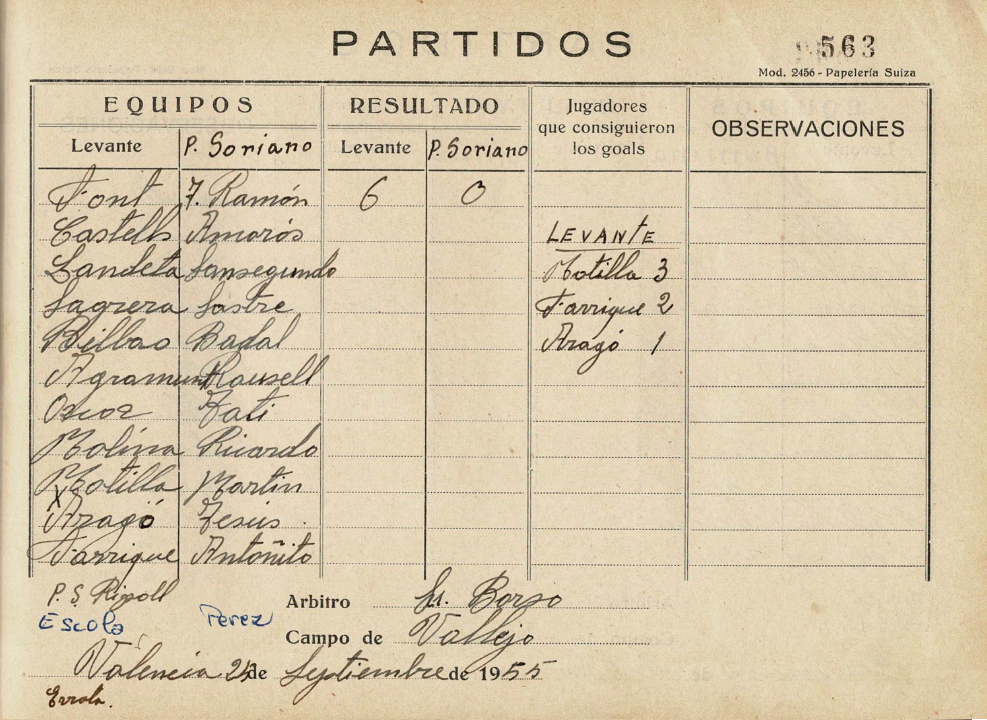 PARTIDOS
563
Mod. 2456 - Papelería Suiza
EQUIPOS RESULTADO Jugadores que consiguieron los goals OBSERVACIONES
Levante P. Soriano Levante P. Soriano
Font J. Ramón 6 0
Castells Amorós LEVANTE
Landeta Sansegundo Motilla 3
Sagrera Sastre Farrique 2
Bilbao Badal Aragó 1
Agramunt Rausell
Oscar Tati
Molina Ricardo
Motilla Martin
X Aragó Jesús
Farrique Antoñito
P. S. Ripoll
Arbitro Sr. Borso
Escolá Perez
Campo de Vallejo
Valencia de Septiembre de 1955
Errata.